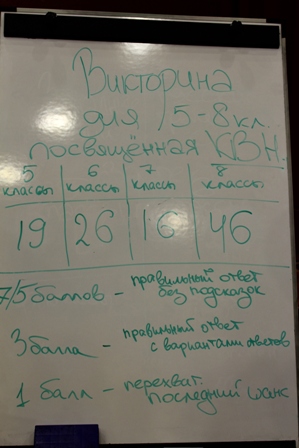 Викторина
для 5-8 кл.
посвящённая КВН.
5 классы 6 классы 7 классы 8 классы
19 26 16 46
7/5 баллов - правильный ответ
без подсказок
3 балла - правильный ответ
с вариантами ответов
1 балл - перехват.
последний шанс